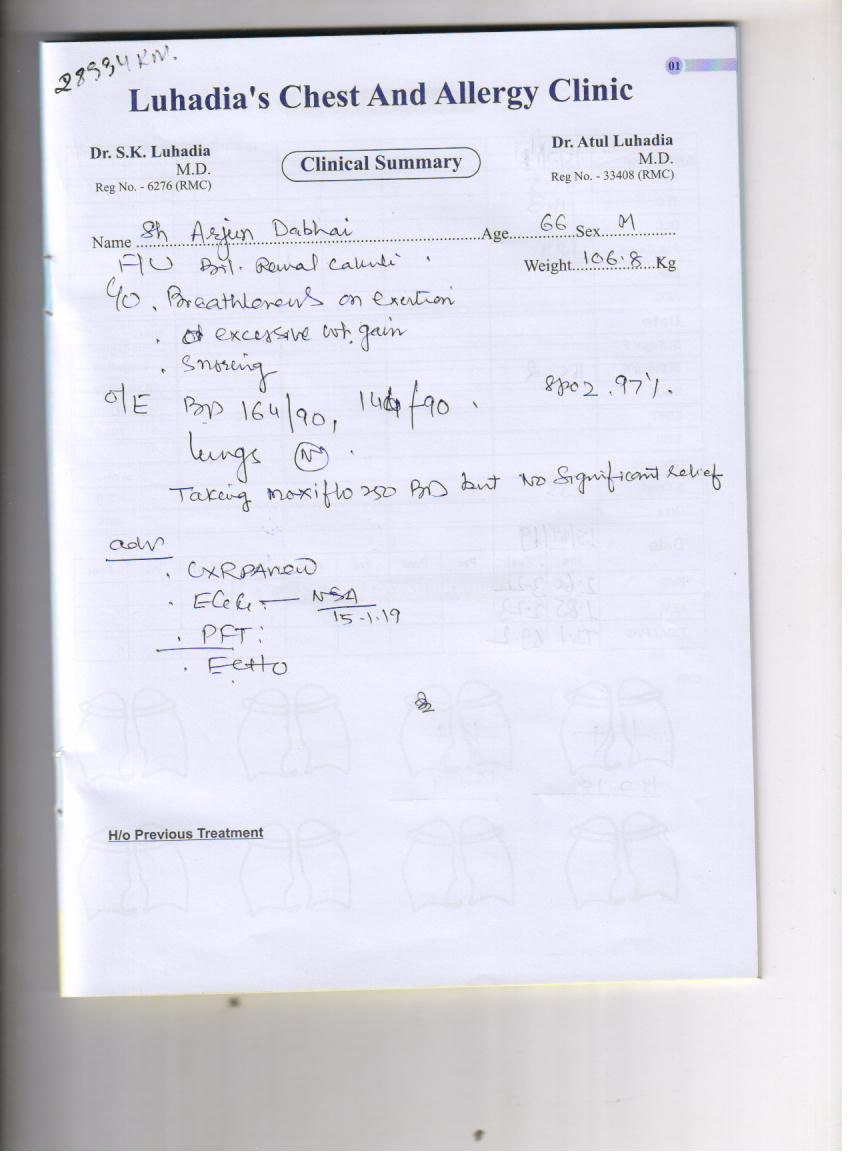 28994 KM.
01
Luhadia's Chest And Allergy Clinic
Dr. S.K. Luhadia
M.D.
Reg No. - 6276 (RMC)
Clinical Summary
Dr. Atul Luhadia
M.D.
Reg No. - 33408 (RMC)
Name Sh Arjun Dabhai Age 66 Sex M
F/U Bil. Renal Calculi . Weight 106.8 Kg
C/O . Breathlessness on exertion
. excessive wt. gain
. Snoring
O/E BP 164/90, 144/90 . SPO2 . 97%.
lungs N .
Taking maxiflo 250 BD but No Significant relief
adv
. CXRPAview
. ECG. — NSA
15-1-19
. PFT :
. Echo
H/o Previous Treatment